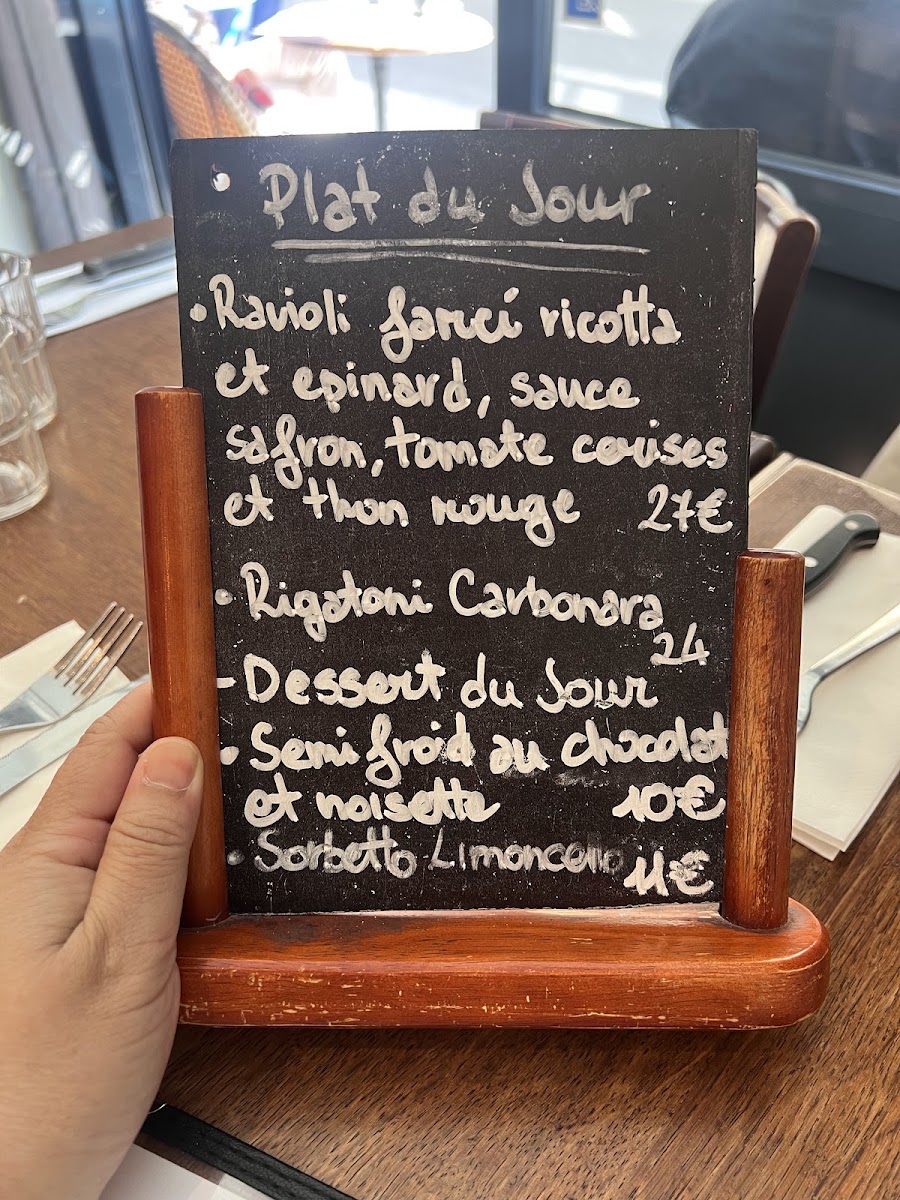 Plat du Jour
• Ravioli farci ricotta
et epinard, sauce
safron, tomate cerises
et thon rouge 27€
• Rigatoni Carbonara
24
- Dessert du Jour
• Semifroid au chocolat
et noisette 10€
• Sorbetto Limoncello 11€